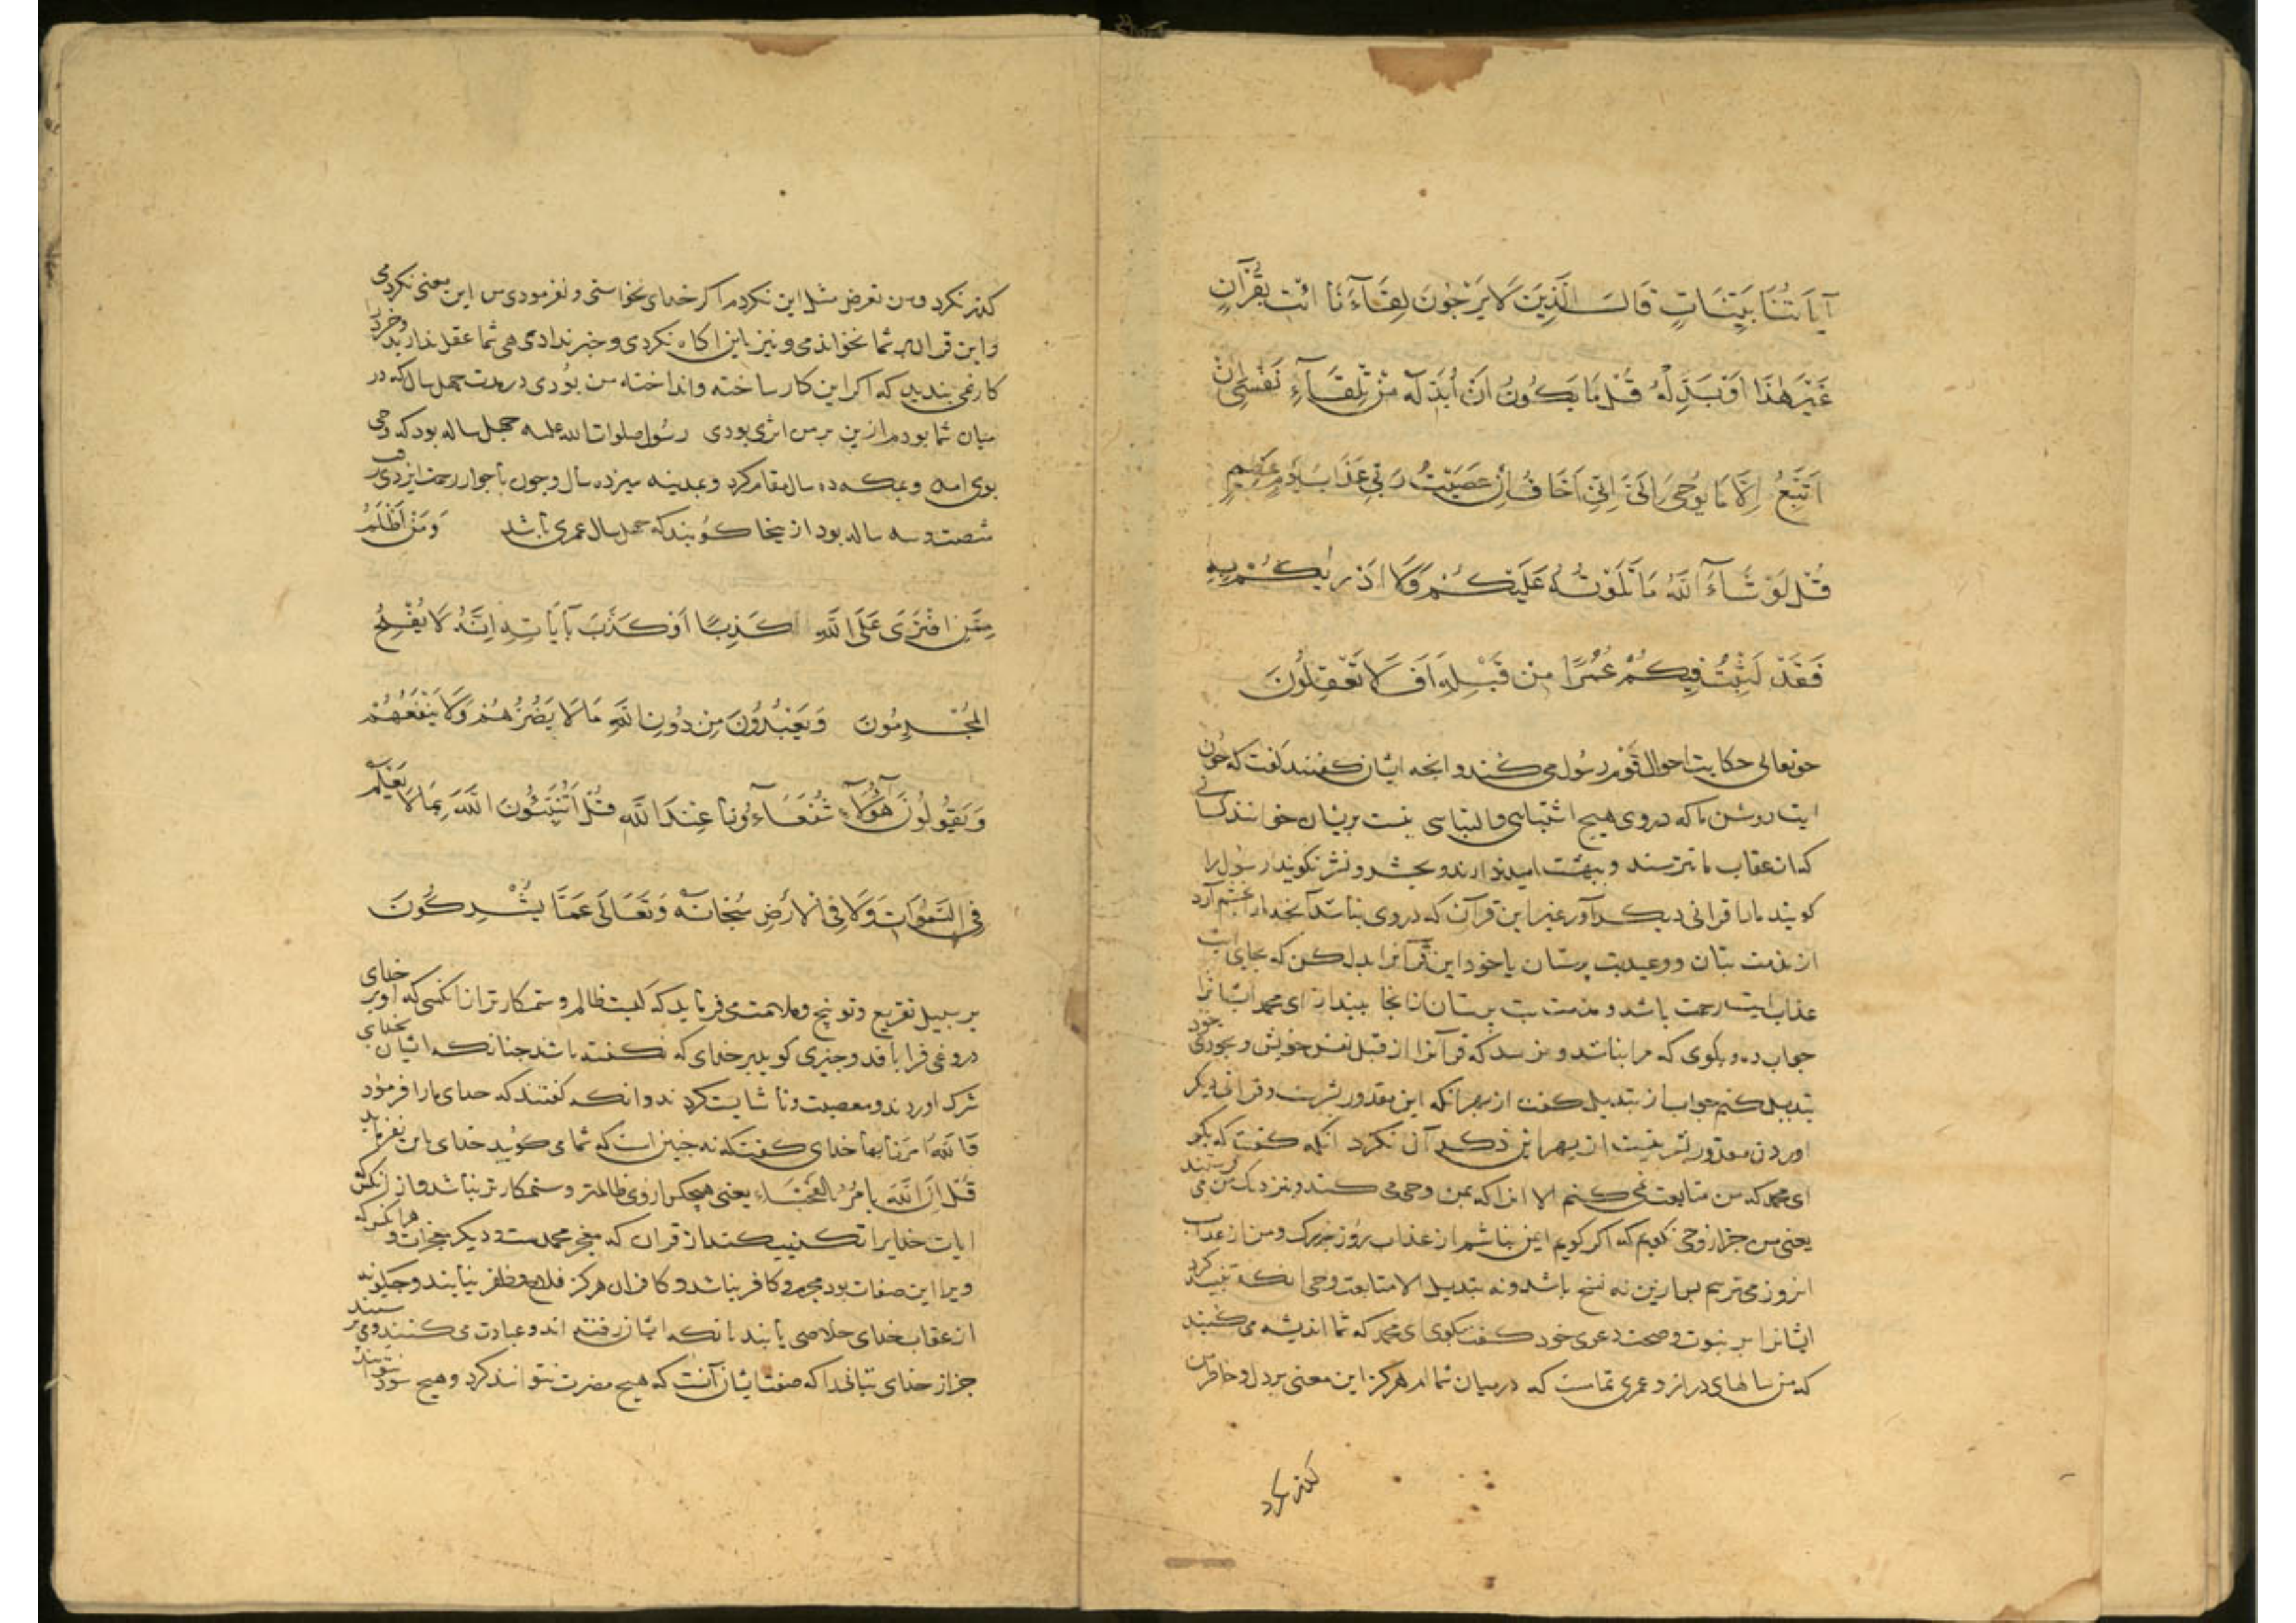 آيَاتُنَا بَيِّنَاتٍ قَالَ الَّذِينَ لَا يَرْجُونَ لِقَاءَنَا ائْتِ بِقُرْآنٍ
غَيْرِ هٰذَا اَوْ بَدِّلْهُ قُلْ مَا يَكُونُ لِي اَنْ اُبَدِّلَهُ مِنْ تِلْقَآءِ نَفْسِي اِنْ
اَتَّبِعُ اِلَّا مَا يُوحَى اِلَيَّ اِنِّي اَخَافُ اِنْ عَصَيْتُ رَبِّي عَذَابَ يَوْمٍ عَظِيمٍ
قُلْ لَوْ شَآءَ اللّٰهُ مَا تَلَوْتُهُ عَلَيْكُمْ وَلَا اَدْرٰيكُمْ بِهِ
فَقَدْ لَبِثْتُ فِيكُمْ عُمُرًا مِنْ قَبْلِهِ اَفَلَا تَعْقِلُونَ
حقتعالی حکایت احوال قوم رسول می کند و انچه ایشان کفتند کفت که چون
ایت روشن ما که دروی هیچ اشتباهی و التباسی نیست بریشان خوانند کسانی
که از عقاب ما نترسند و ببهشت امید ندارند و بحشر و نشر نکویند رسول را
کویند ما را قرانی دیکر آور غیر این قرآن که دروی نباشد آنچه ما را بخشم آرد
از مذمت بتان و وعید بت پرستان یا خود این قرآنرا بدل کن که بجای ایت
عذاب ایت رحمت باشد و مذمت بت پرستان از انجا بینداز ای محمد ایشانرا
جواب ده و بکوی که مرا نباشد و نرسد که قرآنرا از قبل نفس خویش و بخودی خود
تبدیل کنم جواب از تبدیل کفت از بهر انکه این مقدور بشرست و قرانی دیکر
اوردن مقدور بشر نیست از بهر این ذکر آن نکرد انکه کفت که بکو
ای محمد که من متابعت نمی کنم الا انرا که بمن وحی می کنند و بنزدیک من می فرستند
یعنی من جز از وحی نکویم که اکر کویم ایمن نباشم از عذاب روز بزرک و من از عذاب
انروز می ترسم پس ازین نه نسخ باشد و نه تبدیل الا متابعت وحی انکه تنبیه کرد
ایشانرا بر نبوت و صحت دعوی خود کفت بکوی ای محمد که شما اندیشه می کنید
که من سالهای دراز و عمری تماست که در میان شما ام هرکز این معنی بر دل و خاطر من
کذر نکرد
کذر نکرد و من تعرض مثل این نکردم اکر خدای نخواستی و نفرمودی من این معنی نکردمی
و این قران بر شما نخواندمی و نیز باین اکاه نکردی و خبر ندادی هی شما عقل ندارید و خرد را
کار نمی بندید که اکر این کار ساخته و انداخته من بودی در مدت چهل سال که در
میان شما بودم ازین بر من اثری بودی رسول صلوات الله علیه چهل ساله بود که وحی
بوی امد و بمکه ده سال مقام کرد و بمدینه سیزده سال و چون با جوار رحمت ایزدی رفت
شصت و سه ساله بود از ینجا کویند که چهل سال عمری باشد وَمَنْ اَظْلَمُ
مِمَّنِ افْتَرَى عَلَى اللّٰهِ كَذِبًا اَوْ كَذَّبَ بِآيَاتِهِ اِنَّهُ لَا يُفْلِحُ
الْمُجْرِمُونَ وَيَعْبُدُونَ مِنْ دُونِ اللّٰهِ مَا لَا يَضُرُّهُمْ وَلَا يَنْفَعُهُمْ
وَيَقُولُونَ هٰؤُلَآءِ شُفَعَآؤُنَا عِنْدَ اللّٰهِ قُلْ اَتُنَبِّئُونَ اللّٰهَ بِمَا لَا يَعْلَمُ
فِي السَّمٰوَاتِ وَلَا فِي الْاَرْضِ سُبْحَانَهُ وَتَعَالَى عَمَّا يُشْرِكُونَ
بر سبیل تقریع و توبیخ و ملامت می فرماید که کیست ظالم و ستمکارتر از انکسی که او بر خدای
دروغی فرا بافد و چیزی کوید بر خدای که نکفته باشد چنانکه ایشان بخدای
شرک اوردند و معصیت و ناشایست کردند و انکه کفتند که خدای ما را فرمود
وَاللّٰهُ اَمَرَنَا بِهَا خدای کفت که نه چنین است که شما می کویید خدای باین نفرماید
قُلْ اِنَّ اللّٰهَ لا یَامُرُ بِالْفَحْشَاءِ یعنی هیچکس از وی ظالمتر و ستمکارتر نباشد و از انکس که
ایات خدایرا تکذیب کند از قران که معجز محمدست و دیکر معجزات و هر انکس که
ویرا این صفات بود مجرم و کافر باشد و کافران هرکز فلاح و ظفر نیابند و چکونه
از عقاب خدای خلاصی یابند بانکه ایشان رفته اند و عبادت می کنند و می پرستند
جز از خدای بتانی را که صفت ایشان آنست که هیچ مضرت نتوانند کرد و هیچ سود نتوانند